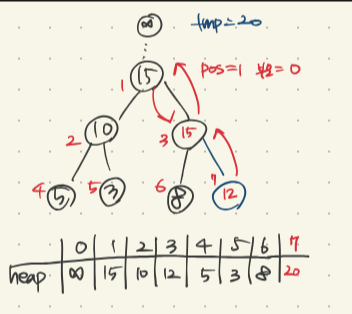 ∞ tmp=20
1 15 pos=1 부모=0
2 10 3 15
4 5 5 3 6 8 7 12
0 1 2 3 4 5 6 7
heap ∞ 15 10 12 5 3 8 20